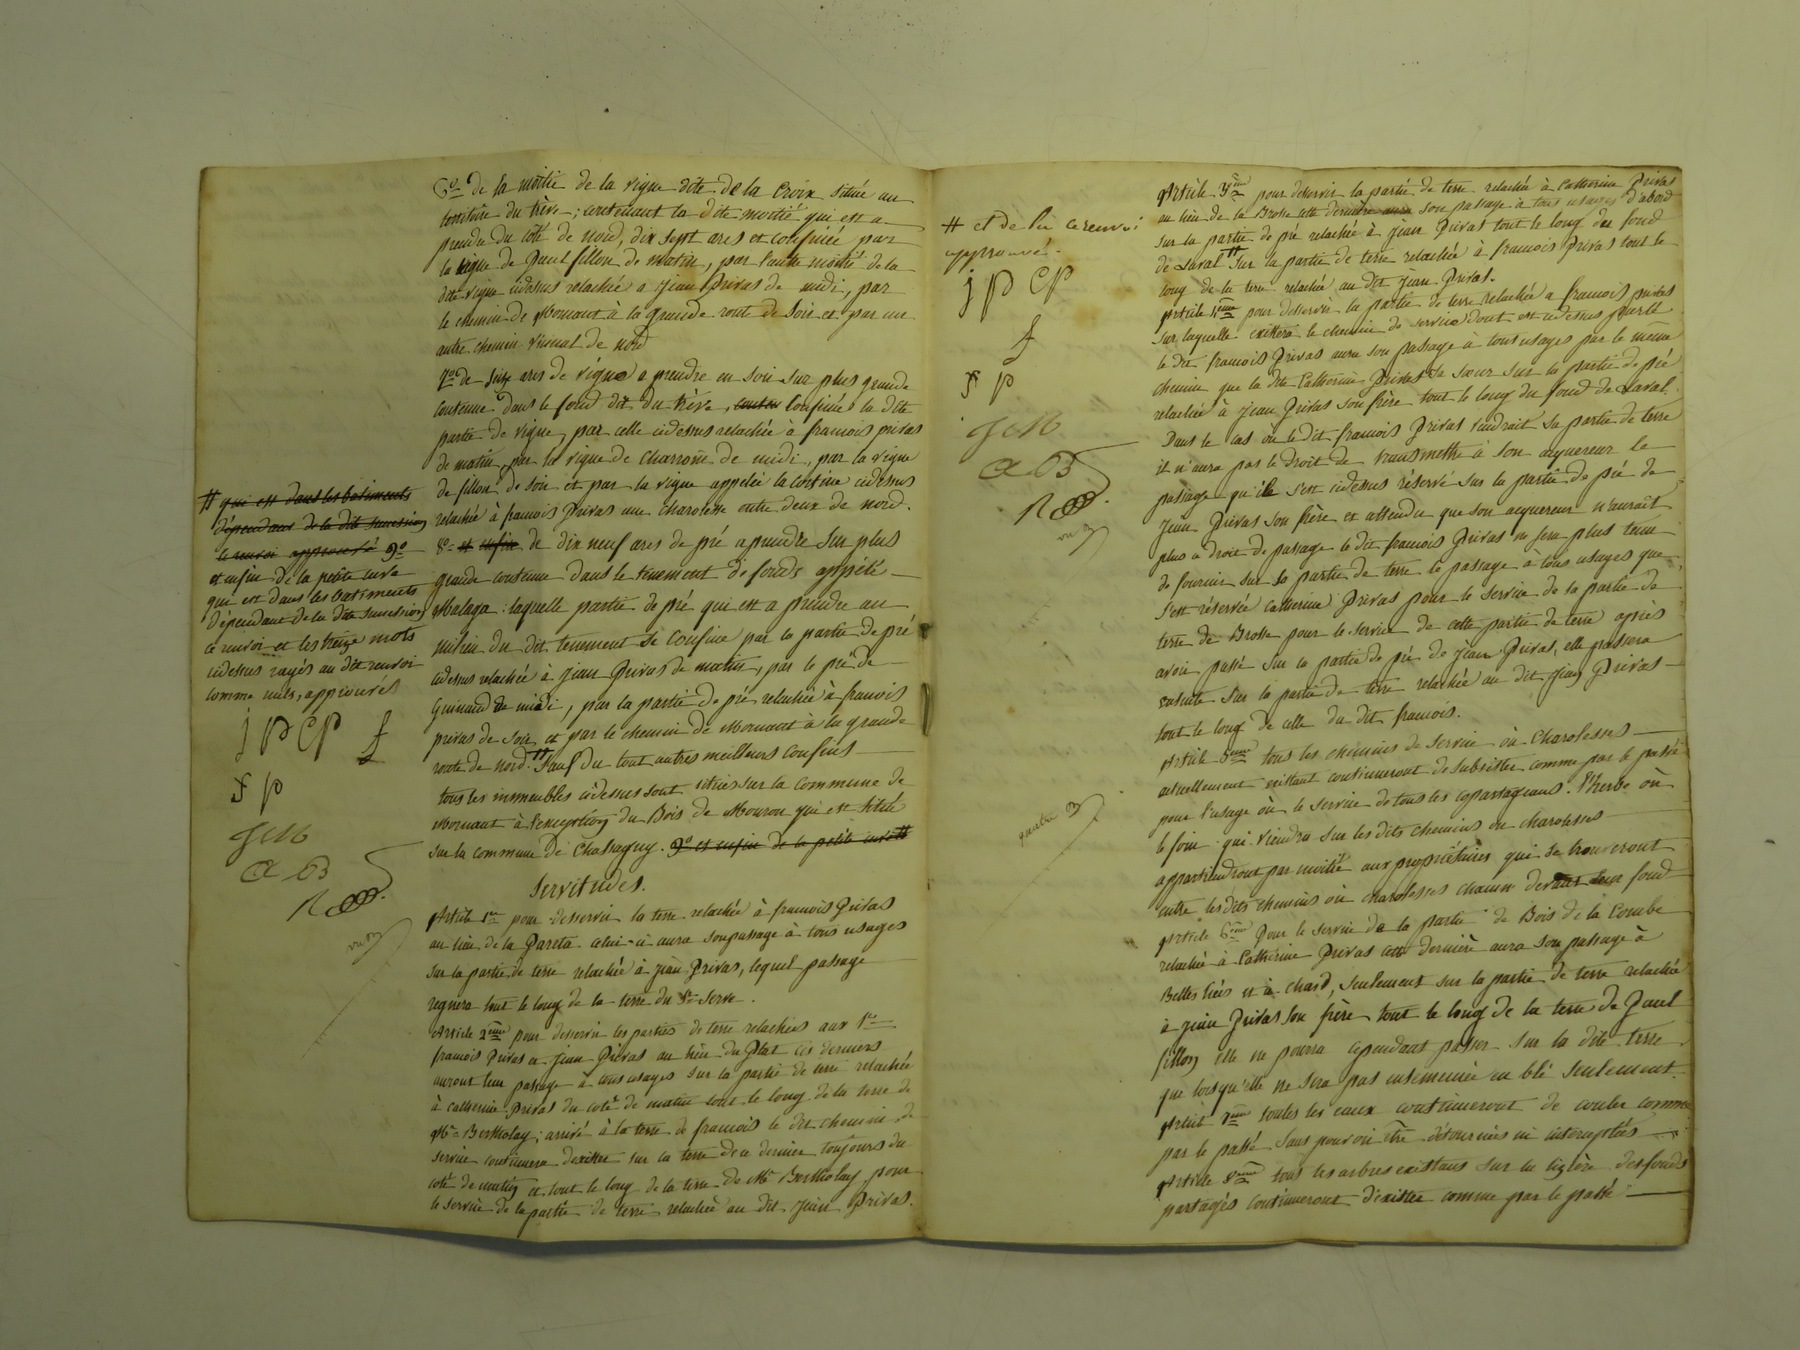 6º de la moitié de la vigne dite de la Croix située au
territoire du trève ; contenant la dite moitié qui est a
prendre du côté de nord, dix sept ares et confinée par
la vigne de Paul fillon de matin, par l'autre moitié de la
dite vigne cidessus relachée a jean Privas de midi, par
le chemin de Mornant à la grande route de soir et par un
autre chemin vicinal de nord
7º de seize ares de vigne a prendre en soir sur plus grande
contenue dans le fond dit du trève, conten confinée la dite
partie de vigne par celle cidessus relachée à francois privas
de matin, par la vigne de Charronn de midi, par la vigne
de fillon de soir et par la vigne appelée la contine cidessus
relachée à francois Privas une charolesse entre deux de nord.
8º et enfin de dix neuf ares de pré aprendre sur plus
grande contenue dans le tenement de fonds appelé
Malaga : laquelle partie de pré qui est a prendre au
milieu du dit tenement se confine par la partie de pré
cidessus relachée à jean Privas de matin, par le pré de
Guinand de midi, par la partie de pré relachée à francois
privas de soir et par le chemin de Mornant à la grande
route de nord. # Sauf du tout autres meilleurs confins
tous les immeubles cidessus sont situés sur la commune de
Mornant à l'exception du Bois de Mouron qui est situé
sur la commune de Chassagny. 9º et enfin de la petite cuve #
Servitudes.
Article 1er pour desservir la terre relachée à francois Privas
au lieu de la Pareta celui-ci aura son passage à tous usages
sur la partie de terre relachée à jean Privas, lequel passage
regnera tout le long de la terre du Sr Serve.
Article 2ème pour desservir les parties de terre relachées aux Srs
francois Privas et jean Privas au lieu du Plat ces derniers
auront leur passage à tous usages sur la partie de terre relachée
à catherine Privas du coté de matin tout le long de la terre de
Mr Bertholay ; arrivé à la terre de francois le dit chemin de
service continuera d'exister sur la terre de ce dernier toujours du
coté de matin et tout le long de la terre de Mr Bertholay pour
le service de la partie de terre relachée au dit jean Privas.
# qui est dans les batiments
dépendant de la dite succession
le renvoi approuvé 9º
et enfin de la petite cuve
qui est dans les batiments
dépendant de la dite succession
ce renvoi et les treize mots
cidessus rayés au dit renvoi
comme nuls, approuvés
j P C P f
f P
JCM
A B
R
# et de lui ce renvoi
approuvé.
j P C P
f
f P
JCM
A B
R
Article 3ème pour desservir la partie de terre relachée à Catherine Privas
au lieu de la Brosse cette dernière aura son passage à tous usages d'abord
sur la partie de pré relachée à jean Privas tout le long du fond
de Laval # sur la partie de terre relachée à francois Privas tout le
long de la terre relachée au dit jean Privas.
Article 4ème pour desservir la partie de terre relachée a francois privas
sur laquelle existera le chemin de service dont est cidessus parlé
le dit francois Privas aura son passage a tous usages par le même
chemin que la dite Catherine Privas sa sœur sur la partie de pré
relachée à jean Privas son frère tout le long du fond de Laval.
Dans le cas où le dit francois Privas vendrait sa partie de terre
il n'aura pas le droit de transmettre à son acquereur le
passage qu'il s'est cidessus réservé sur la partie de pré de
jean Privas son frère et attendu que son acquereur n'aurait
plus a droit de passage le dit francois Privas ne sera plus tenu
de fournir sur sa partie de terre le passage à tous usages que
s'est réservée Catherine Privas pour le service de sa partie de
terre de Brosse pour le service de cette partie de terre après
avoir passé sur la partie de pré de jean Privas, elle passera
ensuite sur la partie de terre relachée au dit jean Privas
tout le long de celle du dit francois.
Article 5ème tous les chemins de service ou Charolesses
actuellement existant continueront de subsister comme par le passé
pour l'usage ou le service de tous les copartageans. L'herbe ou
le foin qui viendra sur les dits chemins ou charolesses
appartiendront par moitié aux propriétaires qui se trouveront
entre les dits chemins ou charolesses chacun devant leur fond
Article 6ème Pour le service de la partie de Bois de la Combe
relachée à Catherine Privas cette dernière aura son passage à
Bettes liées et à chard, seulement sur la partie de terre relachée
à jean Privas son frère tout le long de la terre de Paul
fillon elle ne pourra cependant passer sur la dite terre
que lorsqu'elle ne sera pas ensemencée en blé seulement.
Article 7ème toutes les eaux continueront de couler comme
par le passé sans pouvoir être détournées ni interceptées
Article 8ème tous les arbres existans sur la lizière des fonds
partagés continueront d'exister comme par le passé